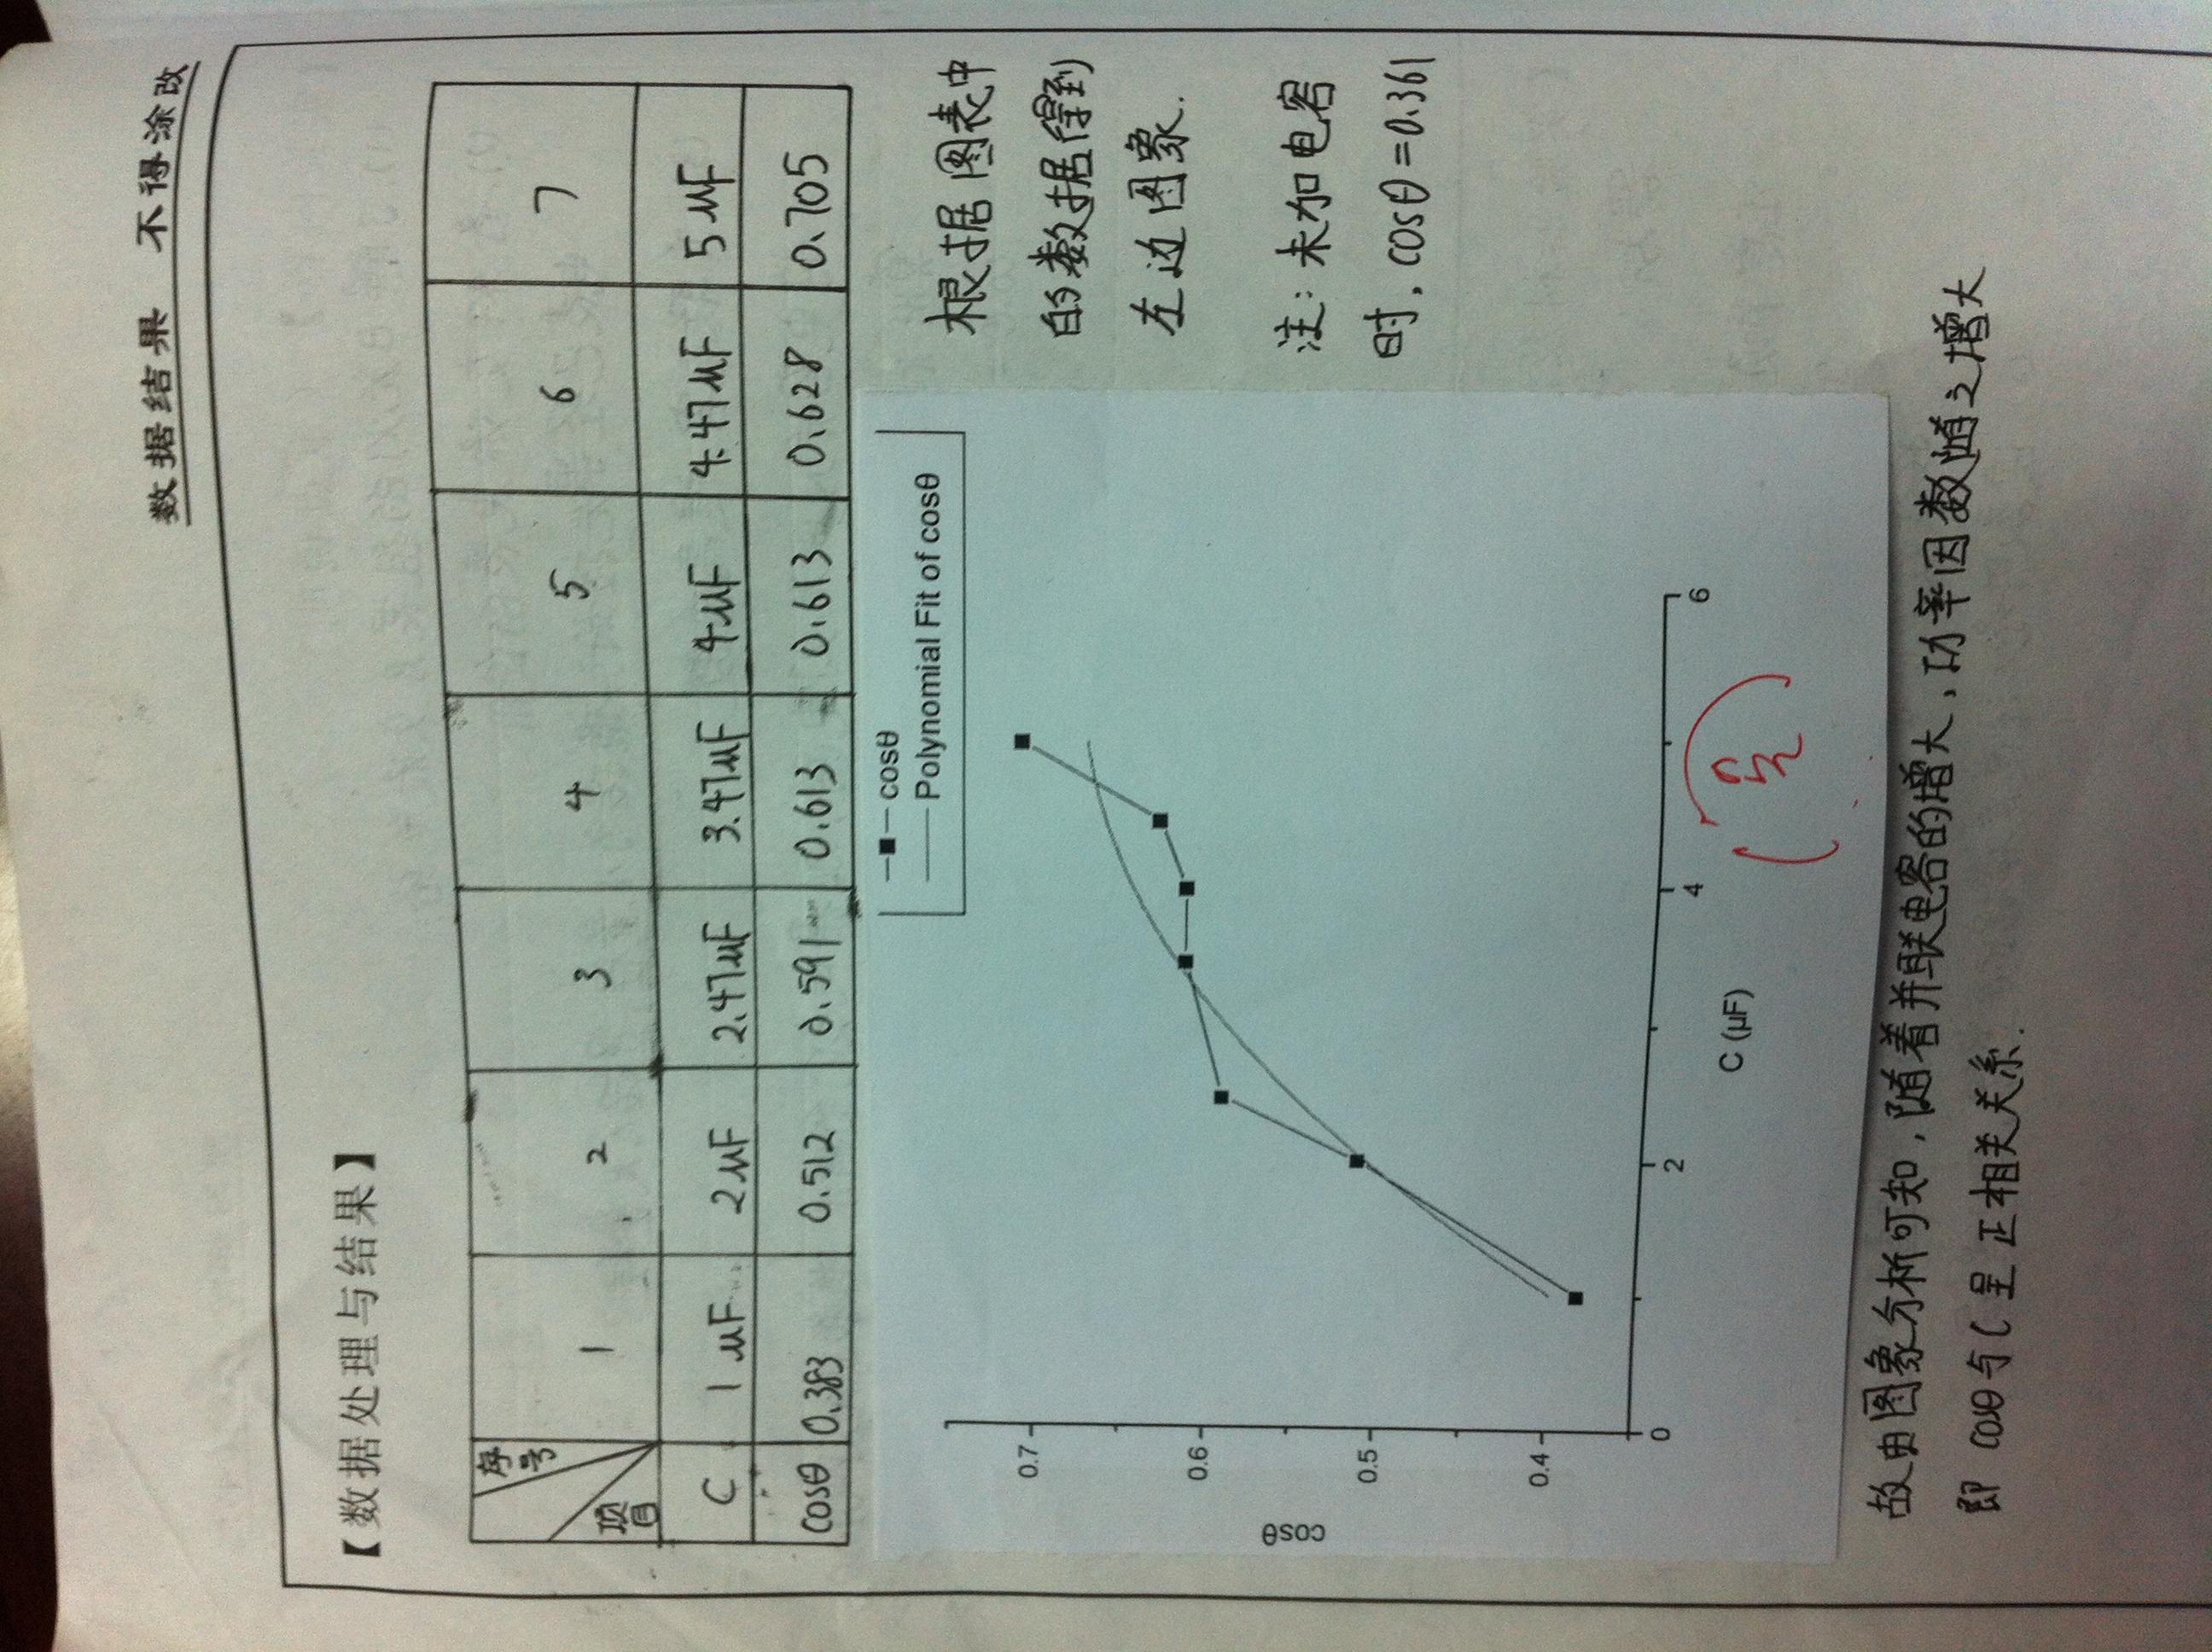 数据结果 不得涂改
【数据处理与结果】
序号
项目
1 2 3 4 5 6 7
C 1μF 2μF 2.47μF 3.47μF 4μF 4.47μF 5μF
cosθ 0.383 0.512 0.591 0.613 0.613 0.628 0.705
cosθ
Polynomial Fit of cosθ
0.7
0.6
0.5
0.4
cosθ
0 2 4 6
C (μF)
根据图表中
的数据得到
左边图象.
注：未加电容
时, cosθ=0.361
故由图象分析可知,随着并联电容的增大,功率因数随之增大
即 cosθ与C呈正相关关系.